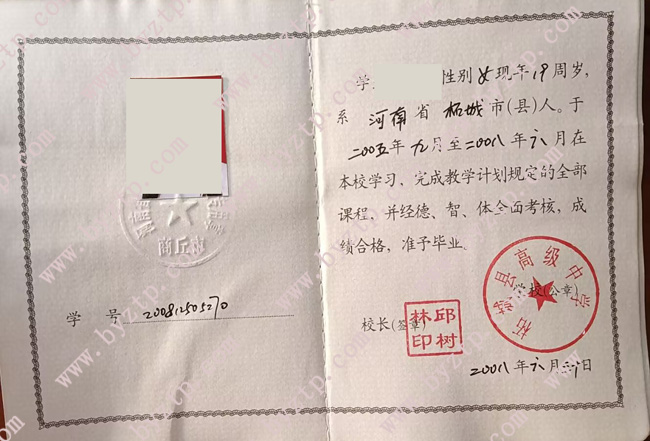 商丘市
学 号 200812505270
学 性别 女 现年 19 周岁,
系 河南 省 柘城 市(县)人。于
二00五年 九 月至二00八 年 六 月在
本校学习，完成教学计划规定的全部
课程，并经德、智、体全面考核，成
绩合格，准予毕业。
柘城县高级中学
学校(公章)
校长(签章)
邱树林印
2008 年 六 月 日
www.byztp.com